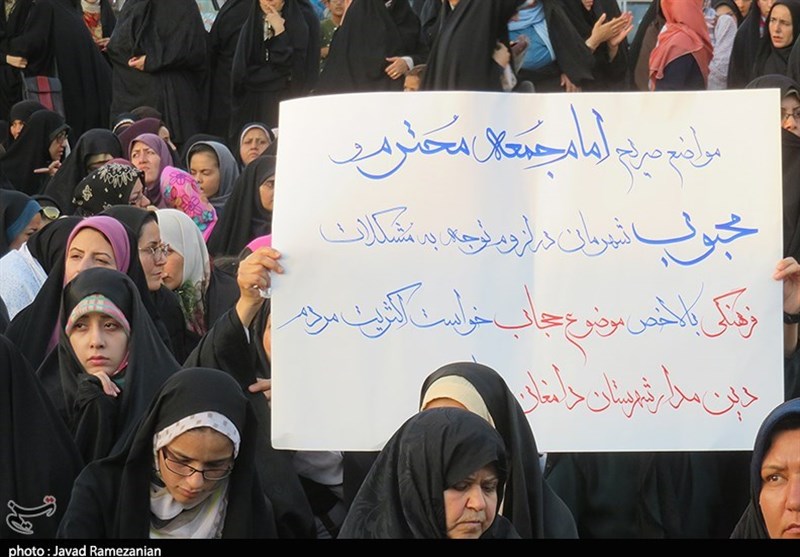 مواضع صریح امام جمعه محترم و
محبوب شهرمان در لزوم توجه به مشکلات
فرهنگی بالاخص موضوع حجاب خواست اکثریت مردم
دین مدار شهرستان دامغان
تسنیم
photo : Javad Ramezanian